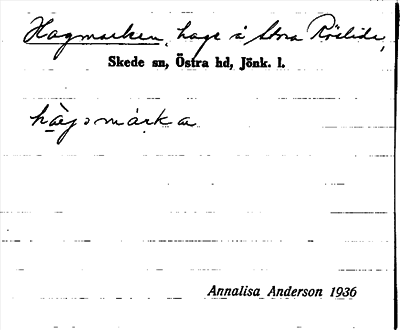 Hagmarken, hage å Stora Röslida,
Skede sn, Östra hd, Jönk. l.
hàgmárka
Annalisa Anderson 1936